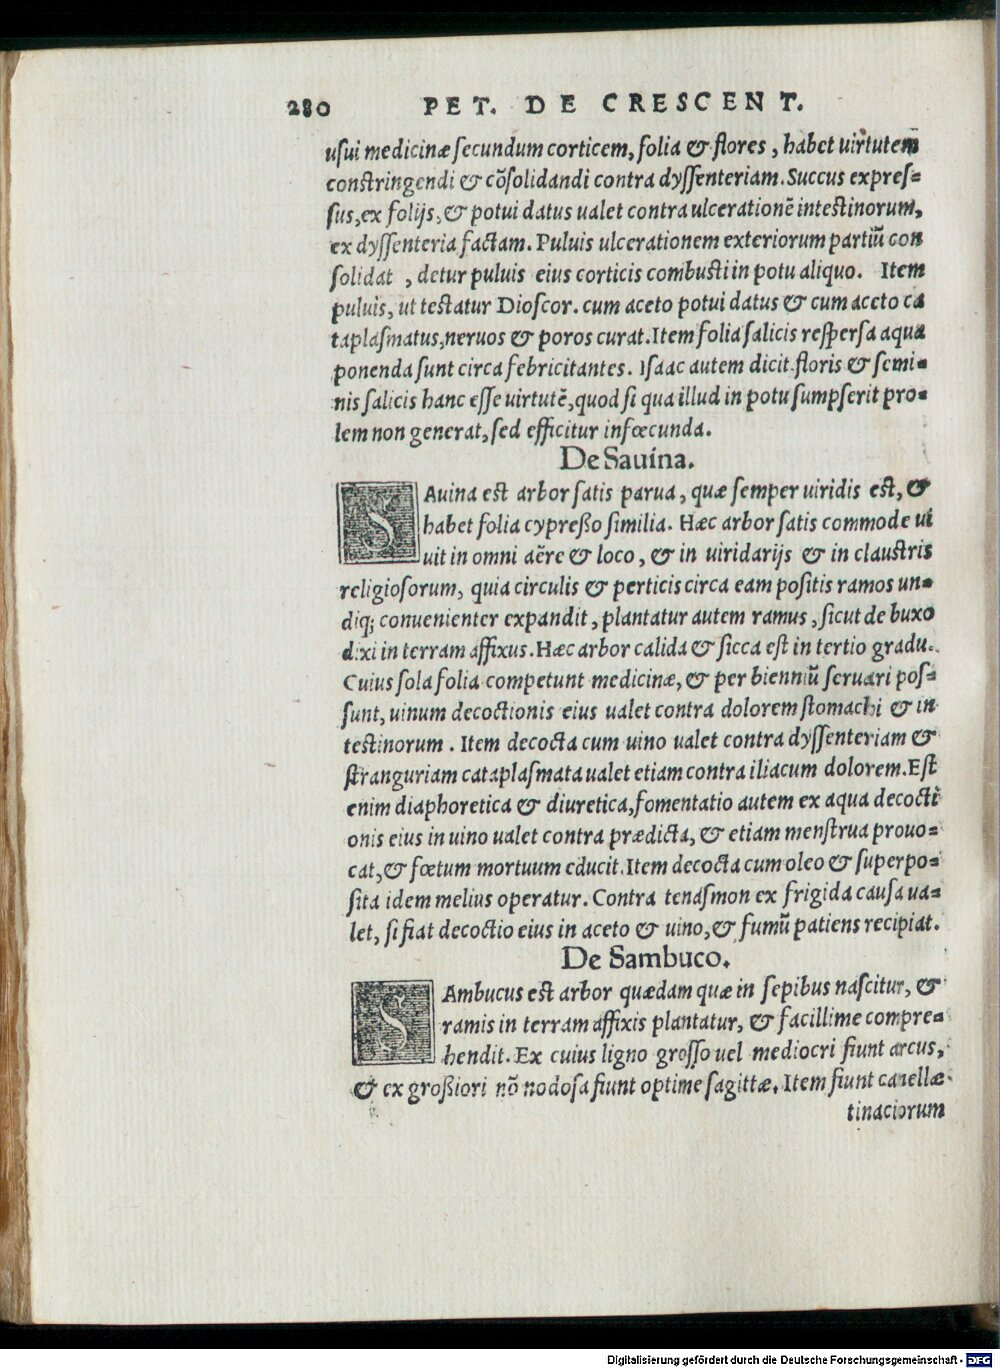 280 PET. DE CRESCENT.
usui medicinæ secundum corticem, folia & flores, habet uirtutem
constringendi & cõsolidandi contra dyssenteriam. Succus expres=
sus, ex folijs, & potui datus ualet contra ulcerationẽ intestinorum,
ex dyssenteria factam. Puluis ulcerationem exteriorum partiũ con
solidat, detur puluis eius corticis combusti in potu aliquo. Item
puluis, ut testatur Dioscor. cum aceto potui datus & cum aceto ca
taplasmatus, neruos & poros curat. Item folia salicis respersa aqua
ponenda sunt circa febricitantes. Isaac autem dicit floris & semi=
nis salicis hanc esse uirtutẽ, quod si qua illud in potu sumpserit pro=
lem non generat, sed efficitur infœcunda.
De Sauina.
SAuina est arbor satis parua, quæ semper uiridis est, &
habet folia cypreßo similia. Hæc arbor satis commode ui
uit in omni aëre & loco, & in uiridarijs & in claustris
religiosorum, quia circulis & perticis circa eam positis ramos un=
diq; conuenienter expandit, plantatur autem ramus, sicut de buxo
dixi in terram affixus. Hæc arbor calida & sicca est in tertio gradu.
Cuius sola folia competunt medicinæ, & per bienniũ seruari pos=
sunt, uinum decoctionis eius ualet contra dolorem stomachi & in
testinorum. Item decocta cum uino ualet contra dyssenteriam &
stranguriam cataplasmata ualet etiam contra iliacum dolorem. Est
enim diaphoretica & diuretica, fomentatio autem ex aqua decocti
onis eius in uino ualet contra prædicta, & etiam menstrua prouo=
cat, & fœtum mortuum educit. Item decocta cum oleo & superpo=
sita idem melius operatur. Contra tenasmon ex frigida causa ua=
let, si fiat decoctio eius in aceto & uino, & fumũ patiens recipiat.
De Sambuco.
SAmbucus est arbor quædam quæ in sepibus nascitur, &
ramis in terram affixis plantatur, & facillime compre=
hendit. Ex cuius ligno grosso uel mediocri fiunt arcus,
& ex großiori nõ nodosa fiunt optime sagittæ. Item fiunt canellæ
tinaciorum
Digitalisierung gefördert durch die Deutsche Forschungsgemeinschaft - DFG